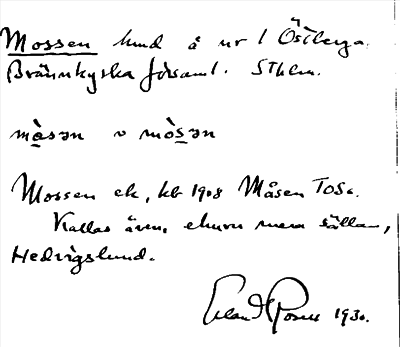 Mossen hmd å nr 1 Östberga
Brännkyrka förs﻿aml. Sthlm.
mɷsən v mòsən
Mossen ek, kb 1908 Måsen TOSo.
Kallas även, ehuru mera sällan,
Hedvigslund.
Erland Rosell 1930.